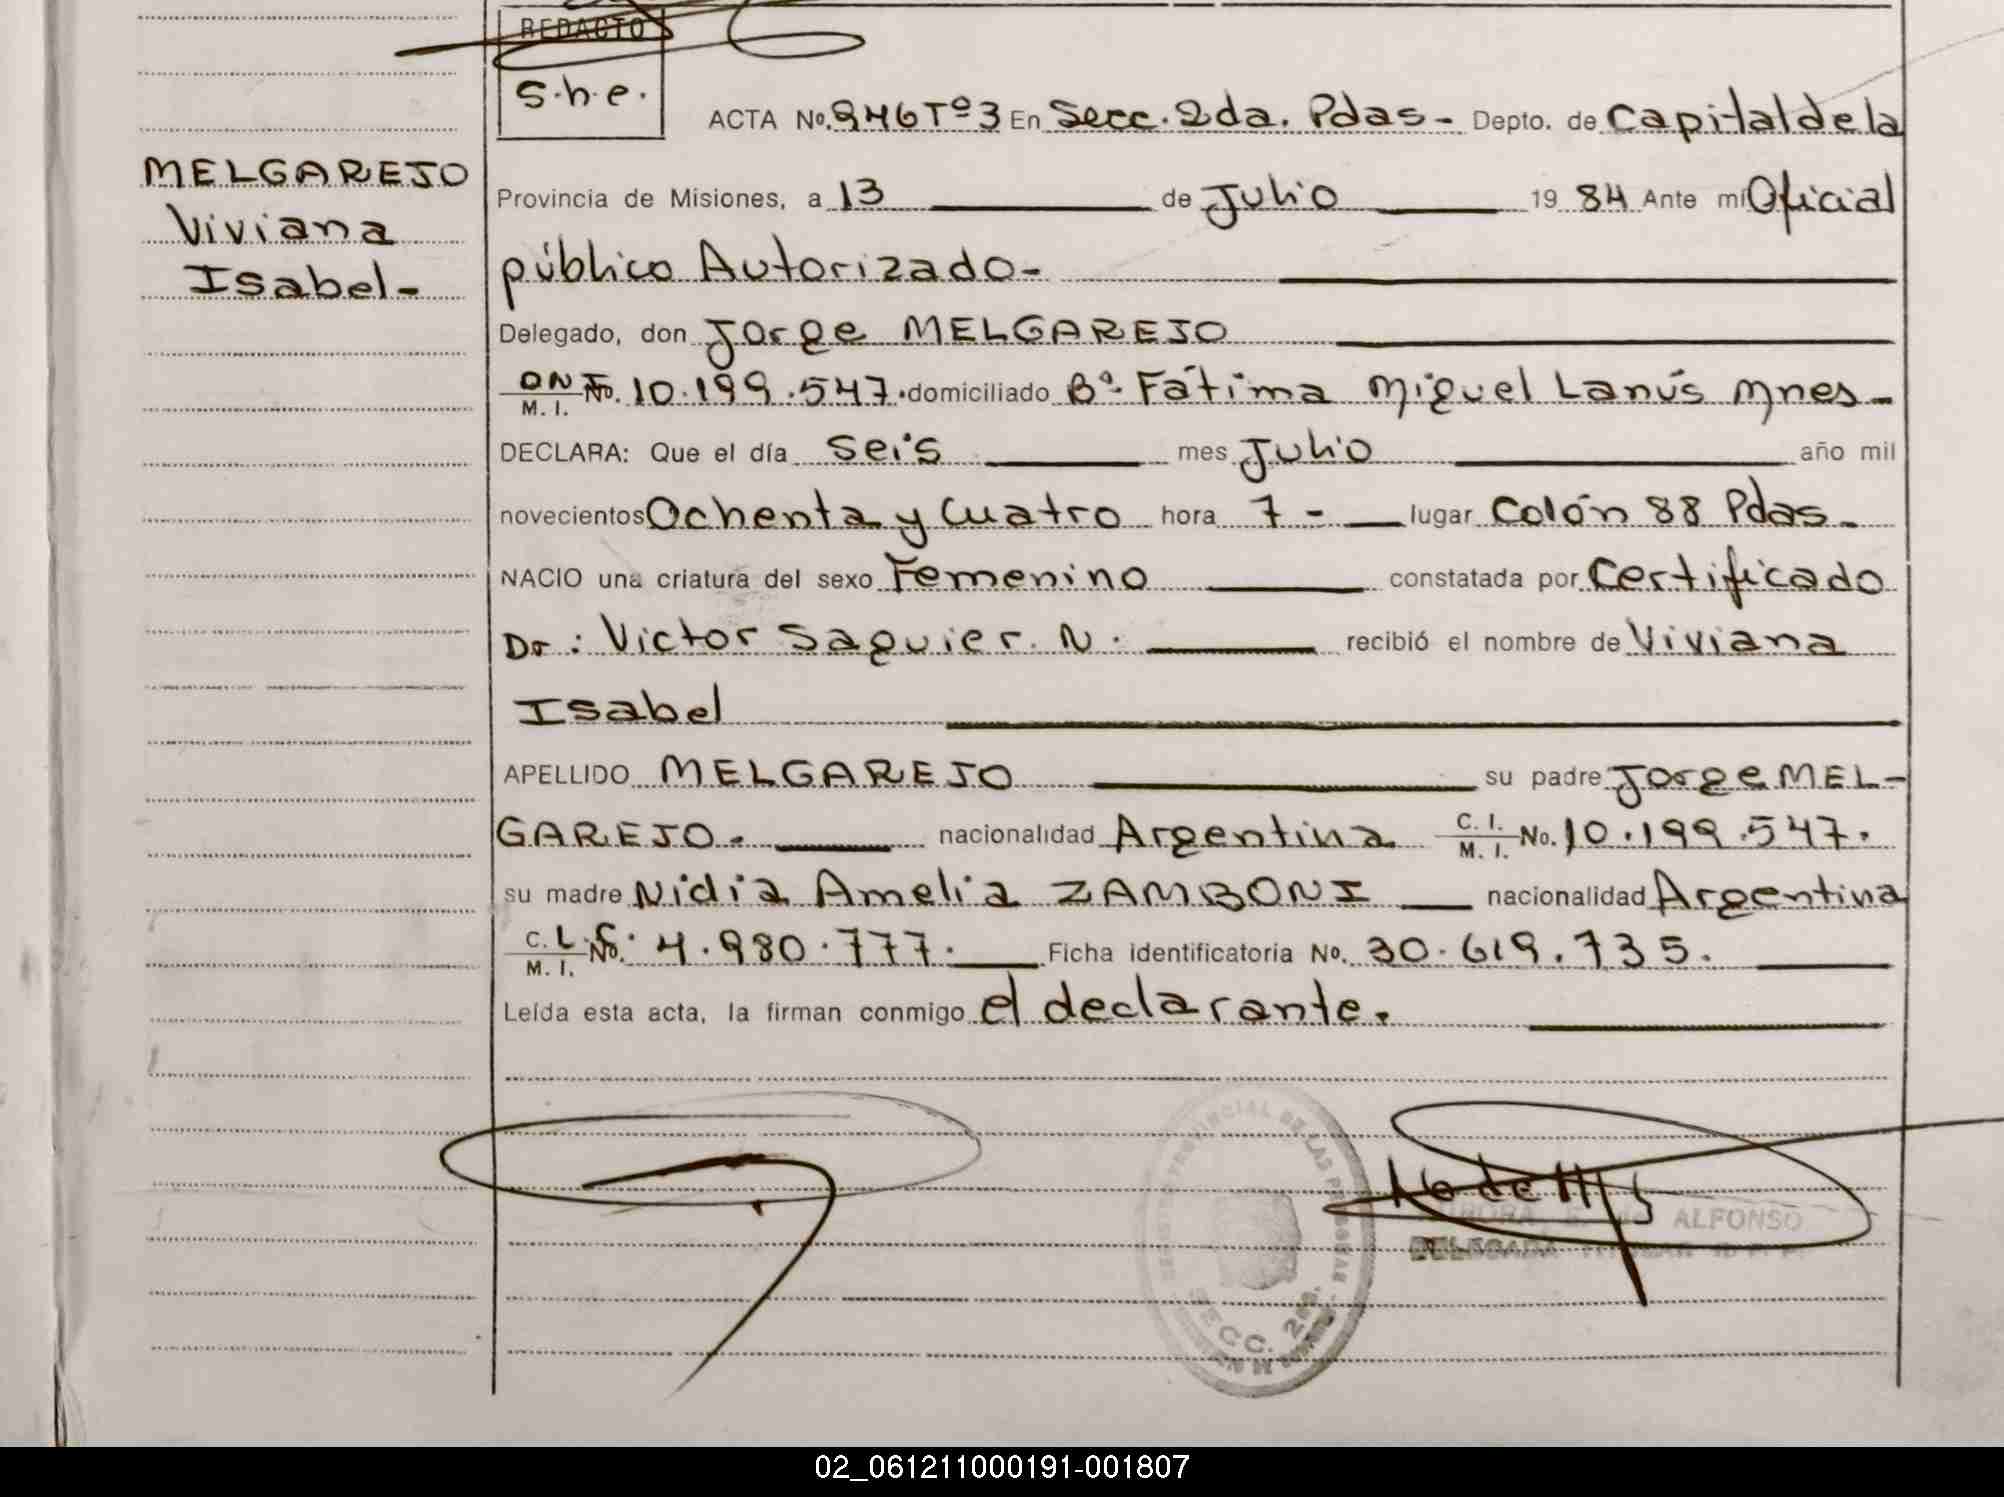 REDACTO
s.h.e.
ACTA No. 946 Tº 3 En Secc. 2da. Pdas - Depto. de Capital de la
MELGAREJO
Viviana
Isabel -
Provincia de Misiones, a 13 de Julio 19 84 Ante mí Oficial
público Autorizado -
Delegado, don Jorge MELGAREJO
DNI No. 10.199.547. domiciliado Bº Fátima Miguel Lanús Mnes -
M. I.
DECLARA: Que el día seis mes Julio año mil
novecientos Ochenta y Cuatro hora 7 - lugar Colón 88 Pdas -
NACIO una criatura del sexo Femenino constatada por Certificado
Dr : Victor Saguier. N. recibió el nombre de Viviana
Isabel
APELLIDO MELGAREJO su padre Jorge MEL-
GAREJO - nacionalidad Argentina C. I. M. I. No. 10.199.547.
su madre Nidia Amelia ZAMBONI nacionalidad Argentina
L.C. M. I. No. 4.980.777. Ficha identificatoria No. 30.619.735.
Leída esta acta, la firman conmigo el declarante.
PROVINCIAL DE LAS PERSONAS
SECC. 2da.
ALFONSO
DELEGADA TITULAR
02_061211000191-001807